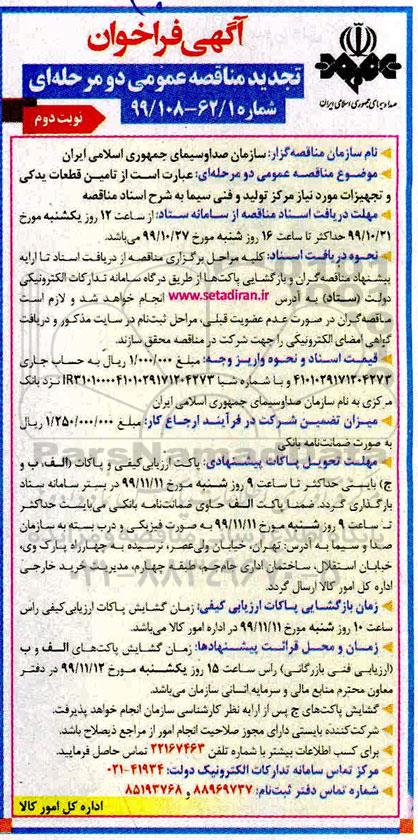 آگهی فراخوان
تجدید مناقصه عمومی دو مرحله‌ای
شماره ۶۲/۱-۹۹/۱۰۸
نوبت دوم
صدا و سیمای جمهوری اسلامی ایران
نام سازمان مناقصه‌گزار: سازمان صداوسیمای جمهوری اسلامی ایران
موضوع مناقصه عمومی دو مرحله‌ای: عبارت است از تامین قطعات یدکی
و تجهیزات مورد نیاز مرکز تولید و فنی سیما به شرح اسناد مناقصه
مهلت دریافت اسناد مناقصه از سامانه ستاد: از ساعت ۱۲ روز یکشنبه مورخ
۹۹/۱۰/۲۱ حداکثر تا ساعت ۱۶ روز شنبه مورخ ۹۹/۱۰/۲۷ می‌باشد.
نحوه دریافت اسناد: کلیه مراحل برگزاری مناقصه از دریافت اسناد تا ارایه
پیشنهاد مناقصه‌گران و بازگشایی پاکت‌ها از طریق درگاه سامانه تدارکات الکترونیکی
دولت (ستاد) به آدرس www.setadiran.ir انجام خواهد شد و لازم است
مناقصه‌گران در صورت عدم عضویت قبلی، مراحل ثبت‌نام در سایت مذکور و دریافت
گواهی امضای الکترونیکی را جهت شرکت در مناقصه محقق سازند.
قیمت اسناد و نحوه واریز وجه: مبلغ ۱/۰۰۰/۰۰۰ ریال به حساب جاری
۴۱۰۱۰۲۹۱۷۱۲۰۴۲۷۳ و با شماره شبا IR۳۱۰۱۰۰۰۰۴۱۰۱۰۲۹۱۷۱۲۰۴۲۷۳ نزد بانک
مرکزی به نام سازمان صداوسیمای جمهوری اسلامی ایران
میزان تضمین شرکت در فرآیند ارجاع کار: مبلغ ۱/۲۵۰/۰۰۰/۰۰۰ ریال
به صورت ضمانت‌نامه بانکی
مهلت تحویل پاکات پیشنهادی: پاکت ارزیابی‌کیفی و پاکات (الف، ب و
ج) بایستی حداکثر تا ساعت ۹ روز شنبه مورخ ۹۹/۱۱/۱۱ در بستر سامانه ستاد
بارگذاری گردد. ضمنا پاکت الف حاوی ضمانت‌نامه بانکی می‌بایست حداکثر
تا ساعت ۹ روز شنبه مورخ ۹۹/۱۱/۱۱ به صورت فیزیکی و درب بسته به سازمان
صدا و سیما به آدرس: تهران، خیابان ولی‌عصر، نرسیده به چهارراه پارک وی،
خیابان استقلال، ساختمان اداری جام‌جم، طبقه چهارم، مدیریت خرید خارجی
اداره کل امور کالا ارسال گردد.
زمان بازگشایی پاکات ارزیابی کیفی: زمان گشایش پاکات ارزیابی‌کیفی راس
ساعت ۱۰ روز شنبه مورخ ۹۹/۱۱/۱۱ در اداره امور کالا می‌باشد.
زمان و محل قرائت پیشنهادها: زمان گشایش پاکت‌های الف و ب
(ارزیابی فنی بازرگانی) راس ساعت ۱۵ روز یکشنبه مورخ ۹۹/۱۱/۱۲ در دفتر
معاون محترم منابع مالی و سرمایه انسانی سازمان می‌باشد.
گشایش پاکت‌های ج پس از ارایه نظر کارشناسی سازمان انجام خواهد پذیرفت.
شرکت‌کننده بایستی دارای مجوز صلاحیت انجام امور از مراجع ذیصلاح باشد.
برای کسب اطلاعات بیشتر با شماره تلفن ۲۲۱۶۷۴۶۳ تماس حاصل فرمایید.
مرکز تماس سامانه تدارکات الکترونیک دولت: ۴۱۹۳۴-۰۲۱
شماره تماس دفتر ثبت‌نام: ۸۸۹۶۹۷۳۷ و ۸۵۱۹۳۷۶۸
اداره کل امور کالا